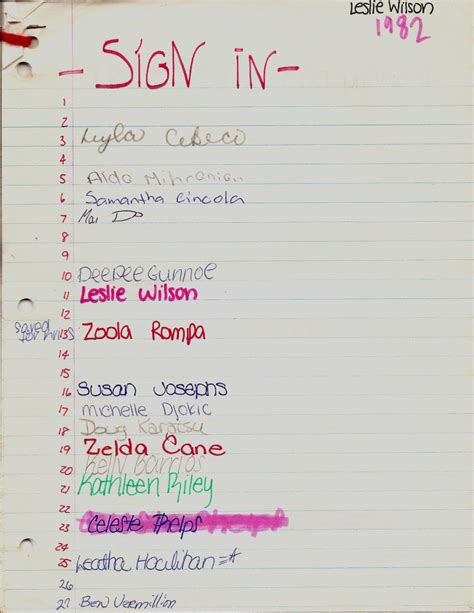 Leslie Wilson
1982
- SIGN IN -
1
2
3 Leyla Cebeco
4
5 Aida Mihranian
6 Samantha Cincola
7 Mai Do
8
9
10 DeeDee Gunnoe
11 Leslie Wilson
12
saved for hrias 13 Zoola Rompa
14
15
16 Susan Josephs
17 michelle Djokic
18 Doug
19 Zelda Cane
20 Kelly Barrios
21 Kathleen Riley
22
23 Celeste Phelps
24
25 Leatha Houlihan
26
27 Ben Vermillion